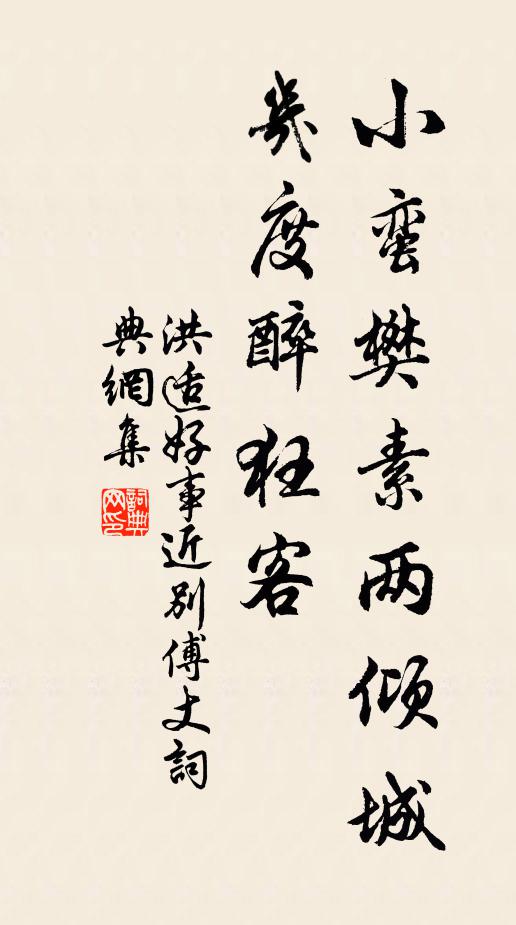 小蛮樊素两倾城
几度醉狂客
洪适好事近别傅丈詞
典網集
詞典網印